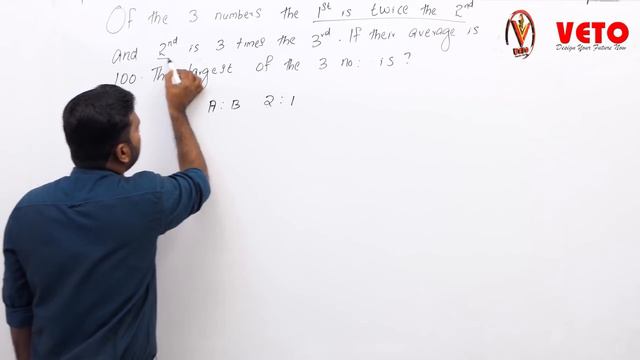 Of the 3 numbers the 1st is twice the 2nd
and 2nd is 3 times the 3rd. If their average is
100. The largest of the 3 no: is?
A : B 2 : 1
VETO
Design Your Future Now